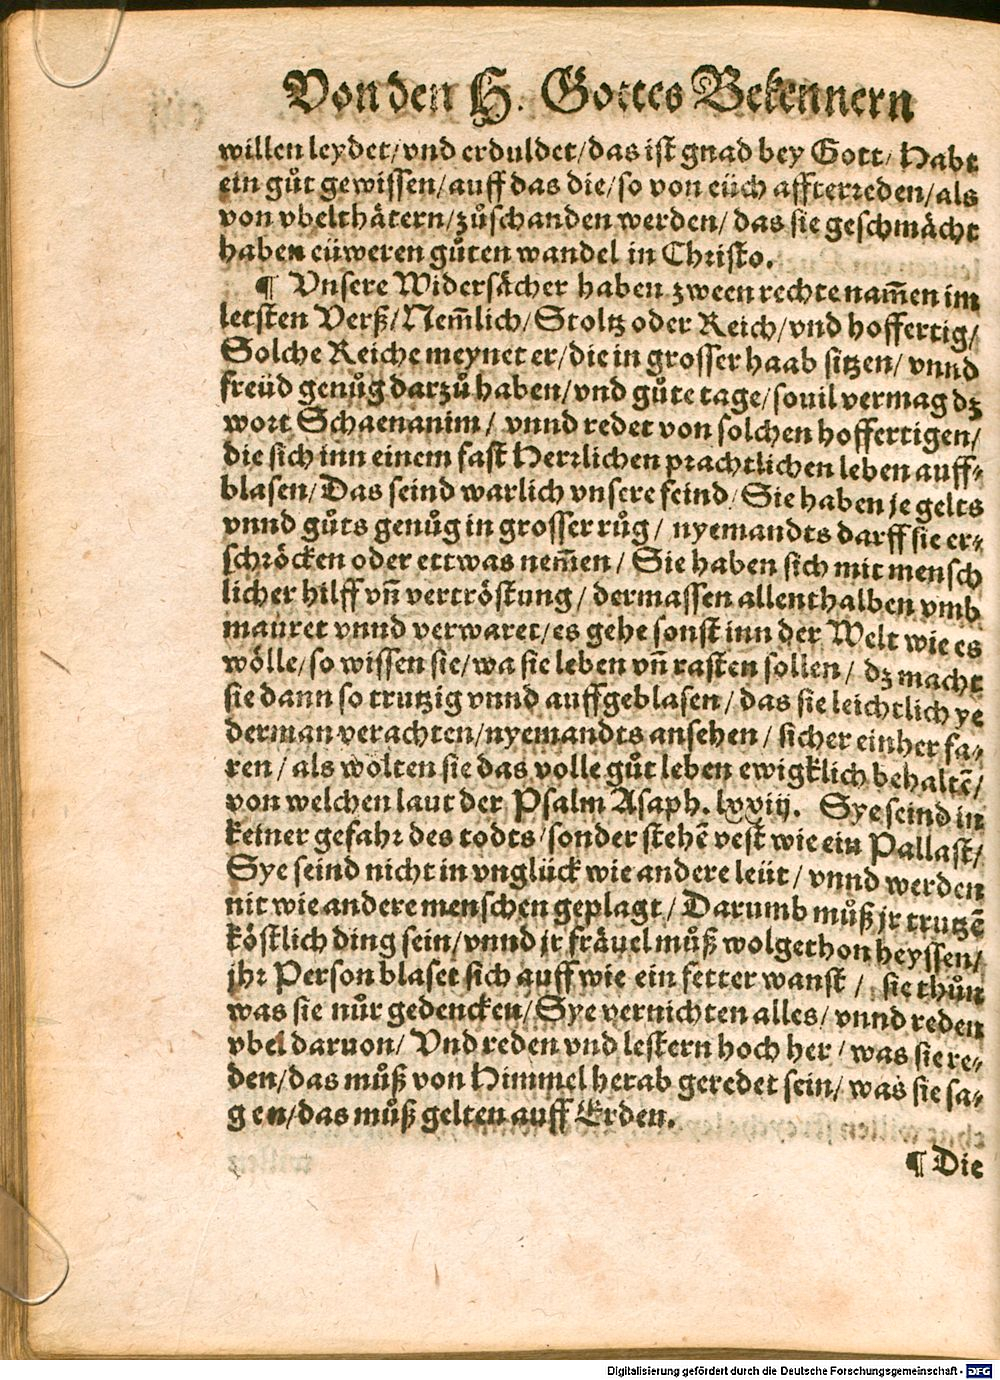 Von den H. Gottes Bekennern
willen leydet/vnd erduldet/das ist gnad bey Gott/ Habt
ein gůt gewissen/auff das die/so von eüch affterreden/als
von vbelthätern/zůschanden werden/ das sie geschmächt
haben eüweren gůten wandel in Christo.
¶ Vnsere Widersächer haben zween rechte nam̃en im
letsten Verß/Nem̃lich/Stoltz oder Reich/vnd hoffertig/
Solche Reiche meynet er/die in grosser haab sitzen/ vnnd
freüd genůg darzů haben/vnd gůte tage/souil vermag dz
wort Schaenanim/ vnnd redet von solchen hoffertigen/
die sich inn einem fast Herrlichen prachtlichen leben auff-
blasen/Das seind warlich vnsere feind/Sie haben je gelts
vnnd gůts genůg in grosser růg/ nyemandts darff sie er-
schröcken oder ettwas nem̃en/ Sie haben sich mit mensch
licher hilff vñ vertröstung/ dermassen allenthalben vmb
mauret vnnd verwaret/es gehe sonst inn der Welt wie es
wölle/so wissen sie/wa sie leben vñ rasten sollen/ dz macht
sie dann so trutzig vnnd auffgeblasen/das sie leichtlich ye
derman verachten/nyemandts ansehen/sicher einher fa-
ren/als wolten sie das volle gůt leben ewigklich behaltẽ/
von welchen laut der Psalm Asaph. lxxiij. Sye seind in
keiner gefahr des todts/sonder stehẽ vest wie ein Pallast/
Sye seind nicht in vnglück wie andere leüt/ vnnd werden
nit wie andere menschen geplagt/Darumb můß jr trutzẽ
köstlich ding sein/vnnd jr fräuel můß wolgethon heyssen/
jhr Person blaset sich auff wie ein fetter wanst/ sie thůn
was sie nůr gedencken/Sye vernichten alles/vnnd reden
vbel daruon/ Vnd reden vnd lestern hoch her/was sie re-
den/das můß von Himmel herab geredet sein/was sie sa-
gen/das můß gelten auff Erden.
¶ Die
Digitalisierung gefördert durch die Deutsche Forschungsgemeinschaft - DFG